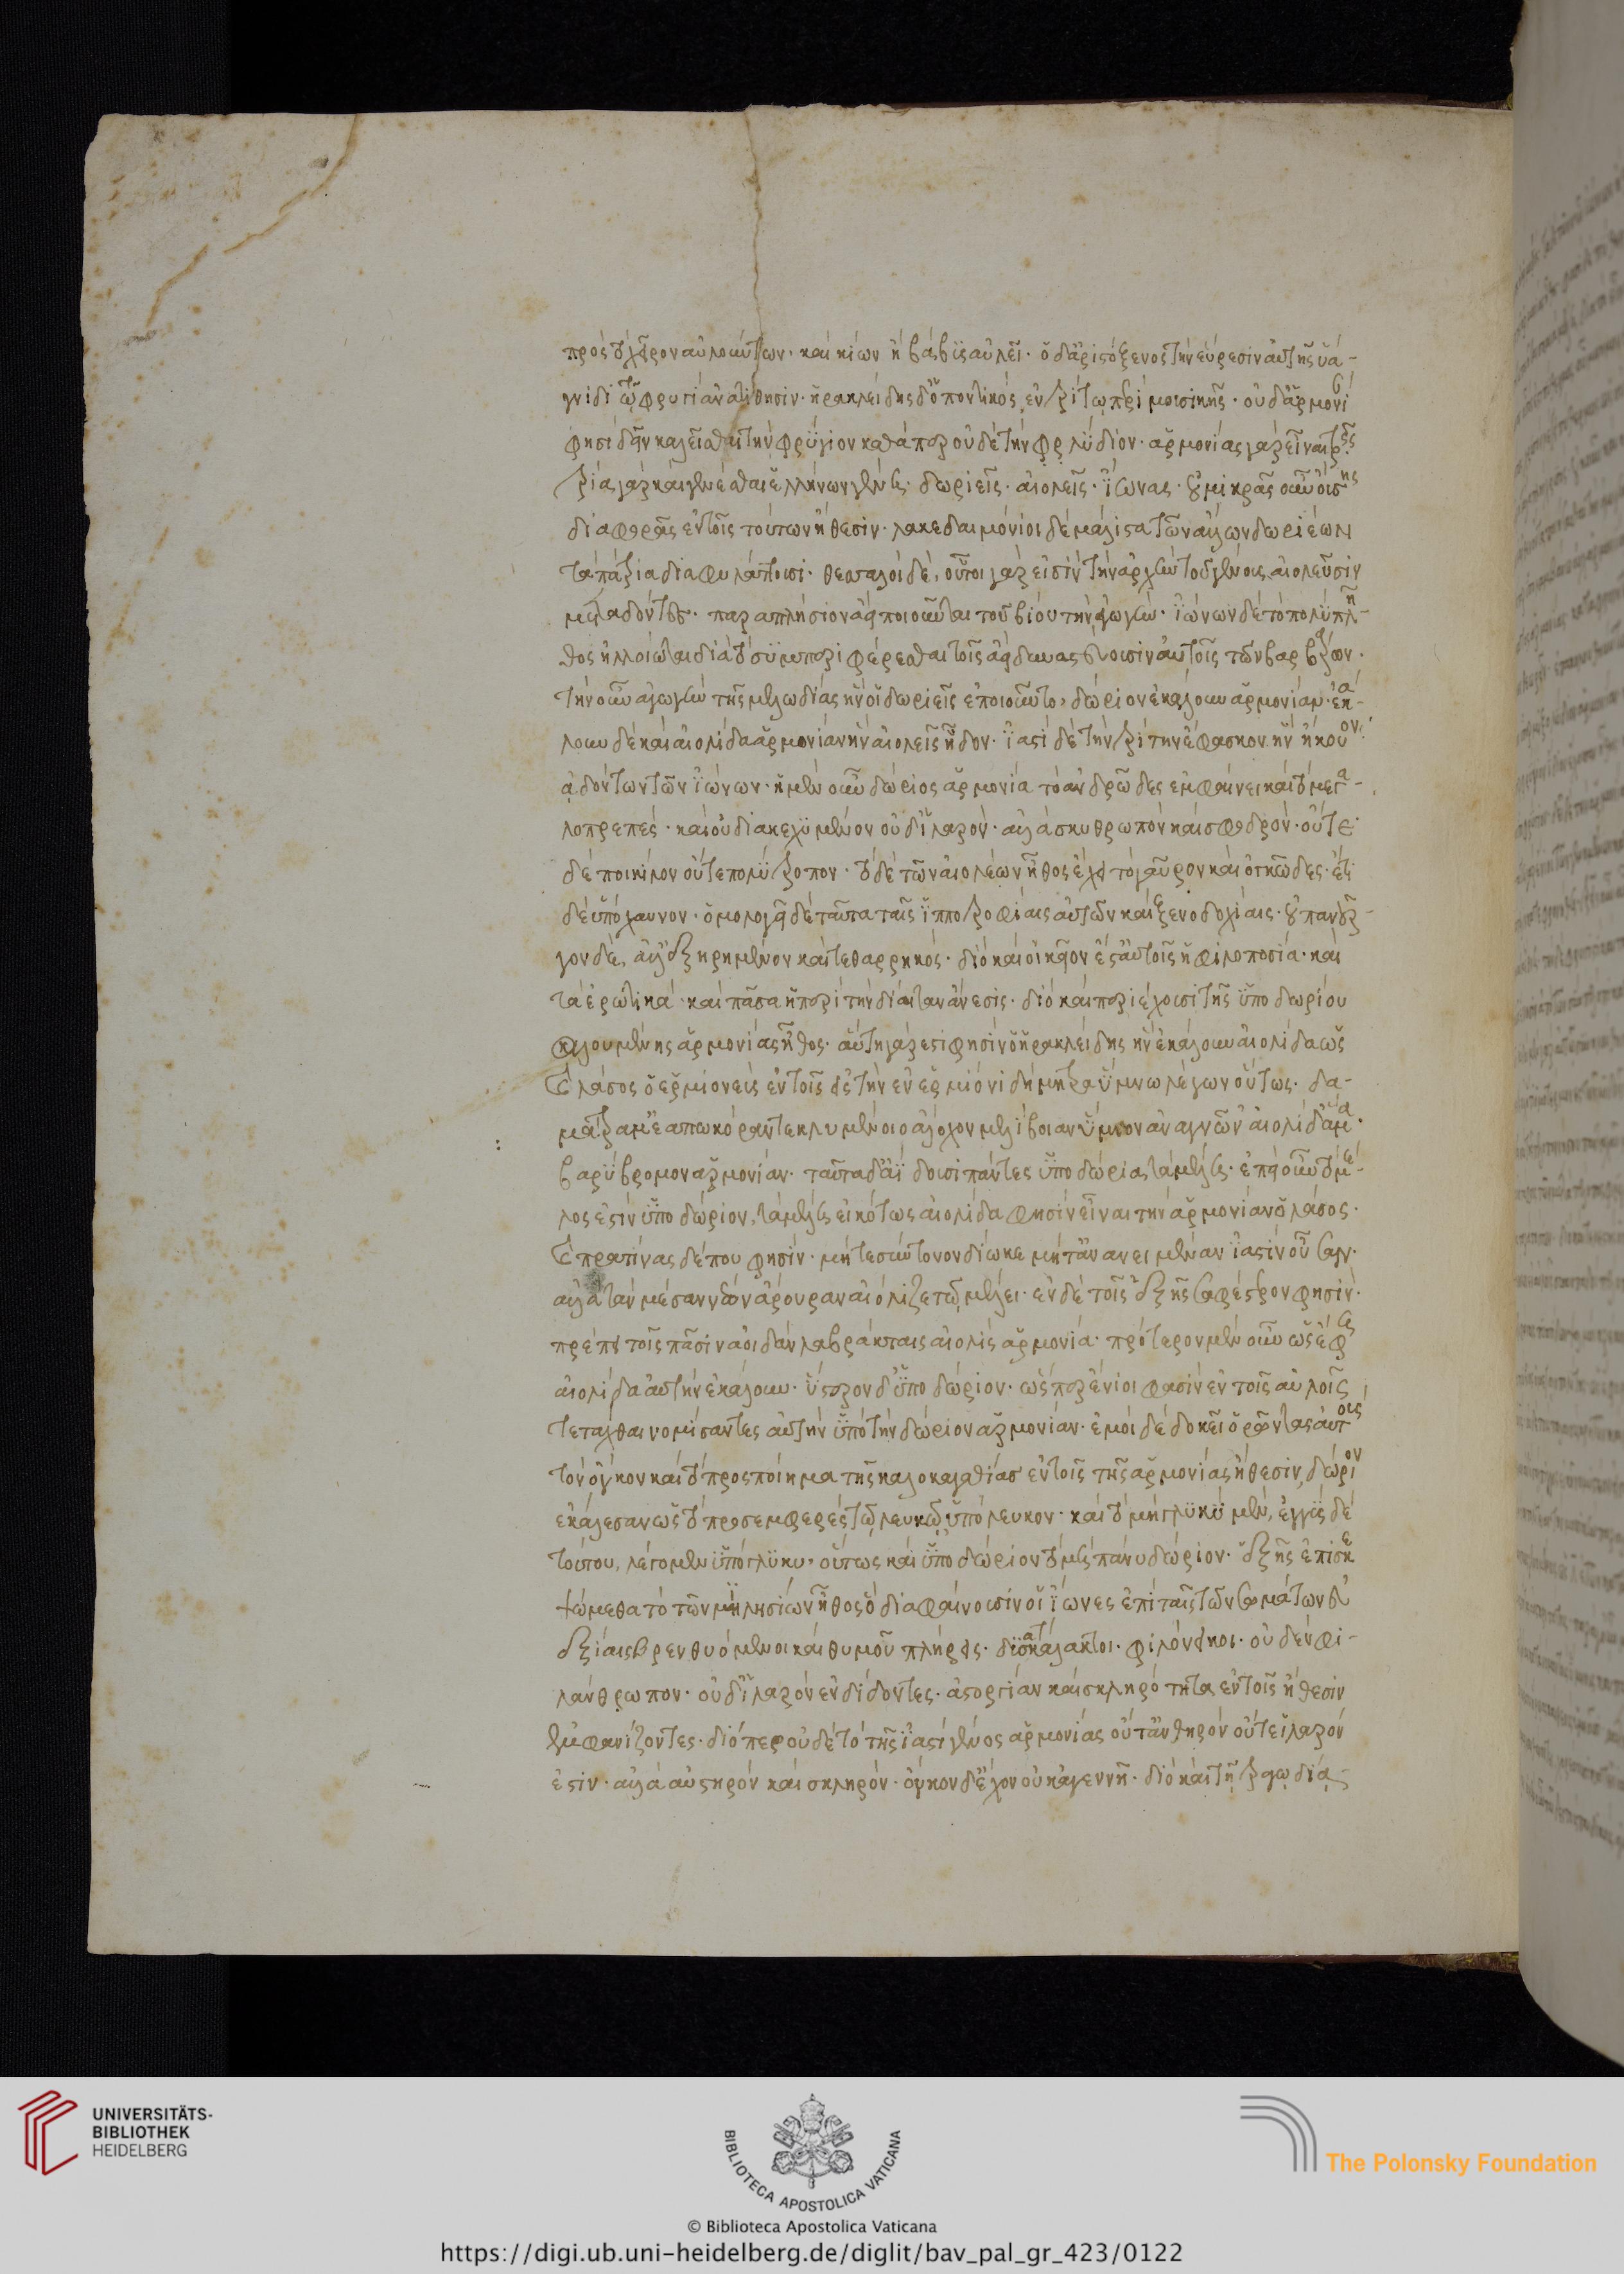 πρὸς τὸ χεῖρον αὐλούντων· καὶ κίων ἡ βάβυς αὐλεῖ· ὁ δ' ἀριστόξενος τὴν εὕρεσιν αὐτῆς ὑά-
γνιδι τῷ φρυγὶ ἀνατίθησιν· ἡρακλείδης δ' ὁ ποντικὸς ἐν τρίτῳ περὶ μουσικῆς· οὐδ' ἁρμονί
φησὶ δεῖν καλεῖσθαι τὴν φρύγιον καθάπερ οὐδὲ τὴν φρ λύδιον· ἁρμονίας γὰρ εἶναι τρεῖς
τρία γὰρ καὶ γενέσθαι ἑλλήνων γένη· δωριεῖς· αἰολεῖς· ἴωνας· οὐ μικρᾶς οὖν οὔσης
διαφορᾶς ἐν τοῖς τούτων ἤθεσιν· λακεδαιμόνιοι δὲ μάλιστα τῶν ἄλλων δωριέων
τὰ πάτρια διαφυλάττουσι· θεσσαλοὶ δὲ, οὗτοι γάρ εἰσιν τὴν ἀρχὴν τοῦ γένους αἰολεῦσιν
μεταδόντες· παραπλήσιον ἀεὶ ποιοῦνται τοῦ βίου τὴν ἀγωγήν· ἰώνων δὲ τὸ πολὺ πλῆ-
θος ἠλλοίωται διὰ τὸ συμπεριφέρεσθαι τοῖς ἀεὶ δυναστεύουσιν αὐτοῖς τῶν βαρβάρων·
τὴν οὖν ἀγωγὴν τῆς μελωδίας ἣν οἱ δωριεῖς ἐποιοῦντο, δώριον ἐκάλουν ἁρμονίαν· ἐκά-
λουν δὲ καὶ αἰολίδα ἁρμονίαν ἣν αἰολεῖς ᾖδον· ἰαστὶ δὲ τὴν τρίτην ἔφασκον ἣν ἤκουον
ᾀδόντων τῶν ἰώνων· ἡ μὲν οὖν δώριος ἁρμονία τὸ ἀνδρῶδες ἐμφαίνει καὶ τὸ μεγα-
λοπρεπές· καὶ οὐ διακεχυμένον οὐδ' ἱλαρὸν· ἀλλὰ σκυθρωπὸν καὶ σφοδρὸν· οὔτε
δὲ ποικίλον οὔτε πολύτροπον· τὸ δὲ τῶν αἰολέων ἦθος ἔχει τὸ γαῦρον καὶ ὀγκῶδες· ἔτι
δὲ ὑπόχαυνον· ὁμολογεῖ δὲ ταῦτα ταῖς ἱπποτροφίαις αὐτῶν καὶ ξενοδοχίαις· οὐ πανοῦρ-
γον δὲ, ἀλλ' ἐξηρημένον καὶ τεθαρρηκός· διὸ καὶ οἰκεῖον ἐστ' αὐτοῖς ἡ φιλοποσία· καὶ
τὰ ἐρωτικὰ· καὶ πᾶσα ἡ περὶ τὴν δίαιταν ἄνεσις· διὸ καὶ περιέχουσι τῆς ὑπο δωρίου
καλουμένης ἁρμονίας ἦθος· αὕτη γάρ ἐστι φησὶν ὁ ἡρακλείδης ἣν ἐκάλουν αἰολίδα ὡς
καὶ λάσος ὁ ἑρμιονεὺς ἐν τοῖς εἰς τὴν ἐν ἑρμιόνι δήμητρα ὕμνω λέγων οὕτως· δά-
ματρα μέλπω κόραν τε κλυμένοιο ἄλοχον μελίβοιαν ὕμνον ἀναγνῶν αἰολίδ' ἅμα·
βαρύβρομον ἁρμονίαν· ταῦτα δ' ἄιδουσι πάντες ὑπο δώρια τὰ μέλη· ἐπεὶ οὖν τὸ μέ-
λος ἐστὶν ὑπο δώριον, τὰ μέλη εἰκότως αἰολίδα φησὶν εἶναι τὴν ἁρμονίαν ὁ λάσος·
καὶ πρατίνας δέ που φησίν· μήτε σύντονον δίωκε μήτ' ἂν ἀνειμέναν ἰαστὶν οὖσαν·
ἀλλὰ τὰν μέσαν νεῶν ἄρουραν αἰόλιζε τῷ μέλει· ἐν δὲ τοῖς ἑξῆς σαφέστερον φησίν·
πρέπει τοῖς πᾶσιν ἀοιδὰν λαβράκταις αἰολὶς ἁρμονία· πρότερον μὲν οὖν ὡς ἔφην
αἰολίδα αὐτὴν ἐκάλουν· ὕστερον δ' ὑπο δώριον· ὥσπερ ἔνιοι φασὶν ἐν τοῖς αὐλοῖς
τετάχθαι νομίσαντες αὐτὴν ὑπὸ τὴν δώριον ἁρμονίαν· ἐμοὶ δὲ δοκεῖ ὁρῶντας αὐτοὺς
τὸν ὄγκον καὶ τὸ προσποίημα τῆς καλοκαγαθίας ἐν τοῖς τῆς ἁρμονίας ἤθεσιν, δώριον
ἐκάλεσαν ὡς τὸ προσεμφερὲς τῷ λευκῷ, ὑπόλευκον· καὶ τὸ μὴ γλυκὺ μὲν, ἐγγὺς δὲ
τούτου, λέγομεν ὑπόγλυκυ· οὕτως καὶ ὑπο δώριον τὸ μὴ πάνυ δώριον· ἑξῆς ἐπισκε
ψώμεθα τὸ τῶν μιλησίων ἦθος ὃ διαφαίνουσιν οἱ ἴωνες ἐπὶ ταῖς τῶν σωμάτων εὐ
εξίαις βρενθυόμενοι καὶ θυμοῦ πλήρεις· δυσκατάλλακτοι· φιλόνεικοι· οὐδὲν φι-
λάνθρωπον· οὐδ' ἱλαρὸν ἐνδιδόντες· ἀστοργίαν καὶ σκληρότητα ἐν τοῖς ἤθεσιν
ἐμφανίζοντες· διόπερ οὐδὲ τὸ τῆς ἰαστὶ γένος ἁρμονίας οὔτ' ἀνθηρὸν οὔτε ἱλαρόν
ἐστιν· ἀλλὰ αὐστηρὸν καὶ σκληρόν· ὄγκον δ' ἔχον οὐκ ἀγεννῆ· διὸ καὶ τῇ τραγῳδίᾳ
UNIVERSITÄTS-
BIBLIOTHEK
HEIDELBERG
BIBLIOTECA APOSTOLICA VATICANA
The Polonsky Foundation
© Biblioteca Apostolica Vaticana
https://digi.ub.uni-heidelberg.de/diglit/bav_pal_gr_423/0122